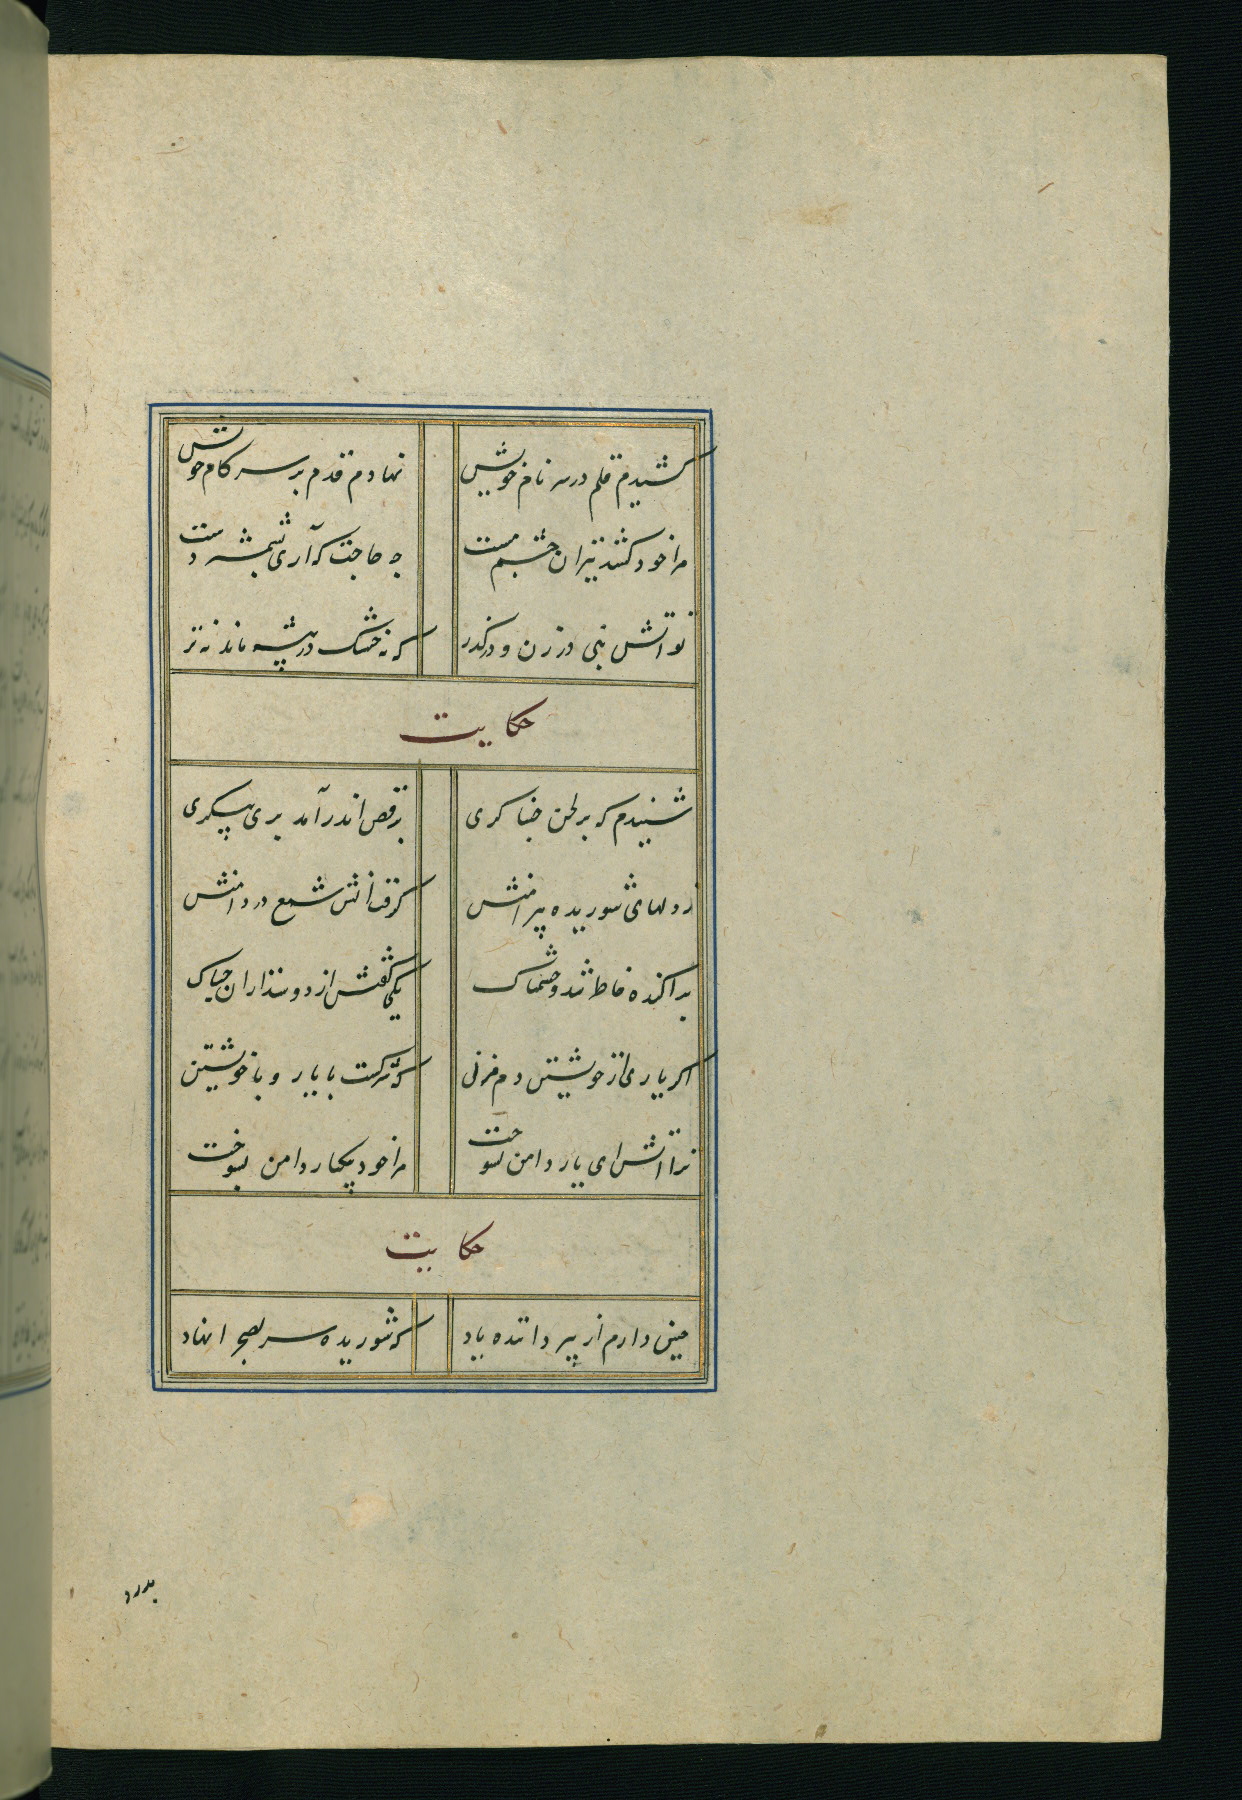 کشیدم قلم در سر نام خویش نهادم قدم بر سر کام خویش
مرا خود کشد تیر آن چشم مست چه حاجت که آری بشمشیر دست
تو آتش بنی در زن و درگذر که نه خشک در بیشه ماند نه تر
حکایت
شنیدم که بر لحن خنیاکری برقص اندر آمد پری پیکری
ز دلهای شوریده پیرامنش گرفت آتش شمع در دامنش
پراکنده خاطر شد و خشمناک یکی گفتش از دوستداران چه باک
اگر یاری از خویشتن دم مزنی که شرکست با یار و با خویشتن
ترا آتش ای یار دامن بسوخت مرا خود بیکبار دامن بسوخت
حکایت
چنین دارم از پیر داننده یاد که شوریده سر بصحرا نهاد